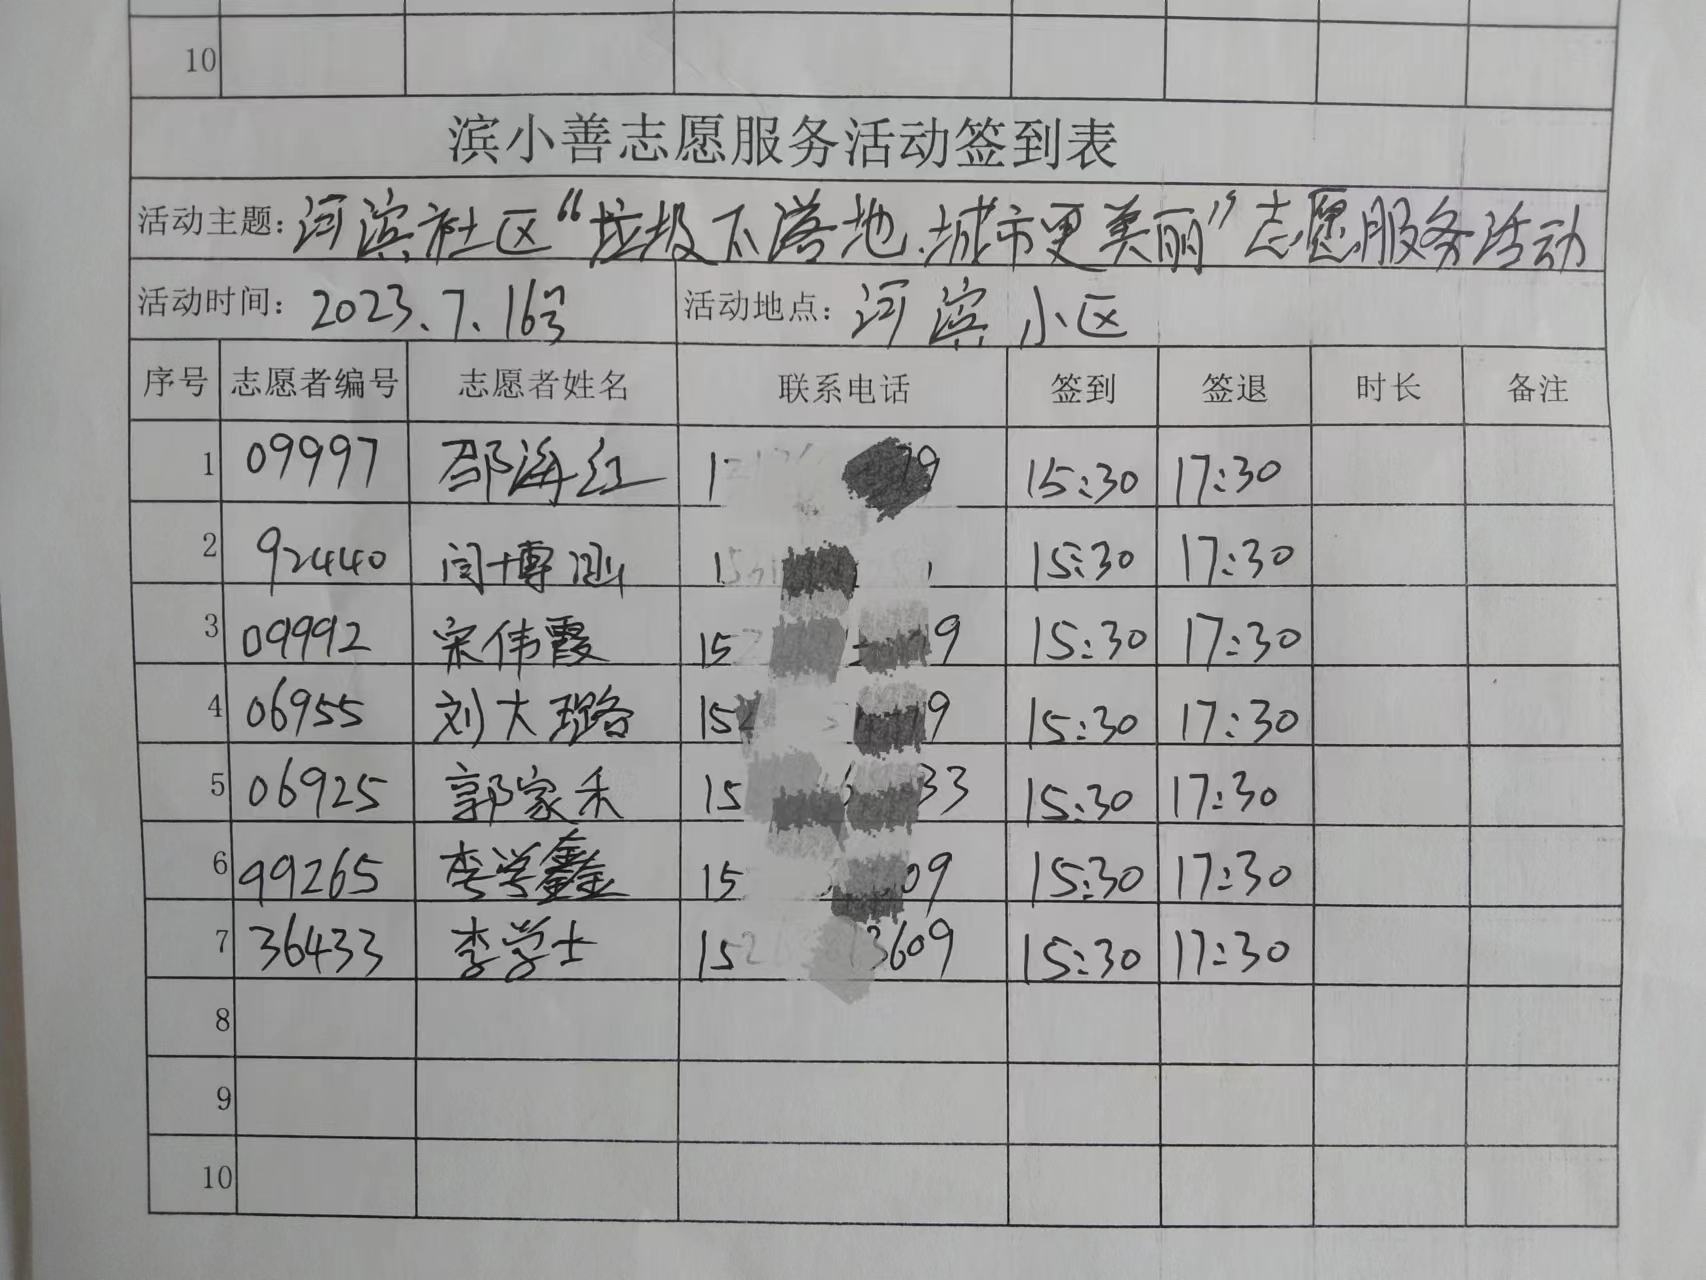 10
滨小善志愿服务活动签到表
活动主题: 河滨社区“垃圾不落地、城市更美丽”志愿服务活动
活动时间: 2023.7.16号 活动地点: 河滨小区
序号 志愿者编号 志愿者姓名 联系电话 签到 签退 时长 备注
1 09997 邵海红 1 79 15:30 17:30
2 92440 闫博涵 15 15:30 17:30
3 09992 宋伟霞 15 9 15:30 17:30
4 06955 刘大璐 15 9 15:30 17:30
5 06925 郭家禾 15 33 15:30 17:30
6 99265 李学鑫 15 09 15:30 17:30
7 36433 李学士 15 3609 15:30 17:30
8
9
10